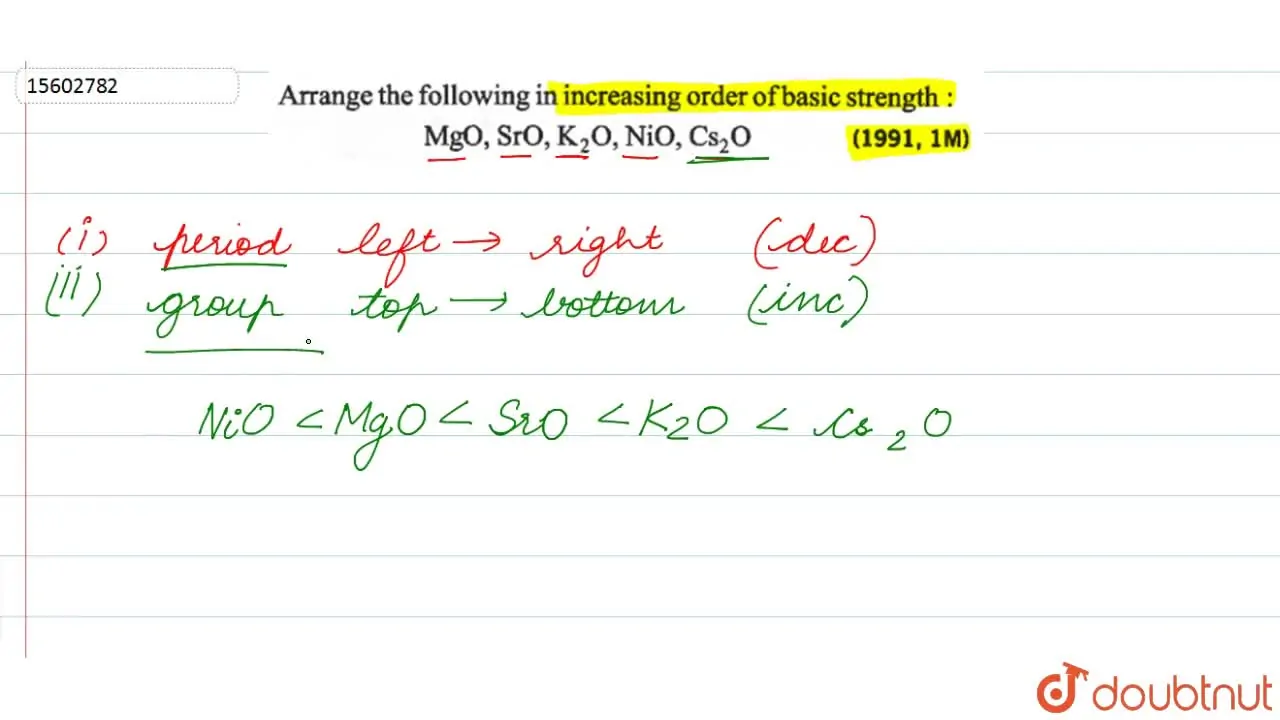 15602782
Arrange the following in increasing order of basic strength :
MgO, SrO, K₂O, NiO, Cs₂O (1991, 1M)
(i) period left → right (dec)
(ii) group top → bottom (inc)
NiO < MgO < SrO < K₂O < Cs₂O
doubtnut